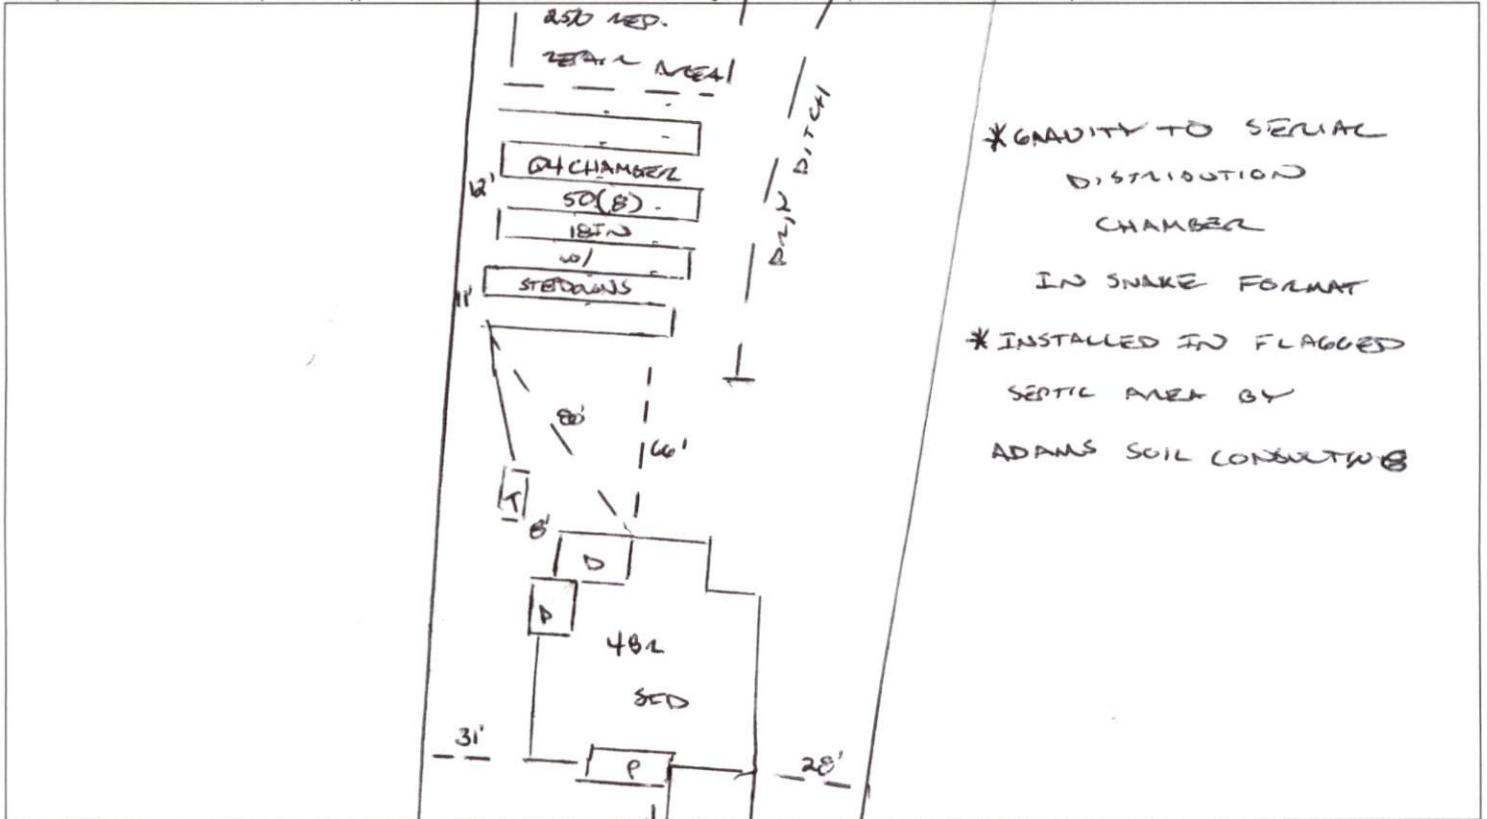 25% RED.
REPAIR AREA
Q4 CHAMBER
12'
50(8)
18IN
w/
STEPDOWNS
11'
DRIP DITCH
80'
66'
T
8'
D
P
4BR
SFD
31'
P
28'
*GRAVITY TO SERIAL
DISTRIBUTION
CHAMBER
IN SNAKE FORMAT
*INSTALLED IN FLAGGED
SEPTIC AREA BY
ADAMS SOIL CONSULTING